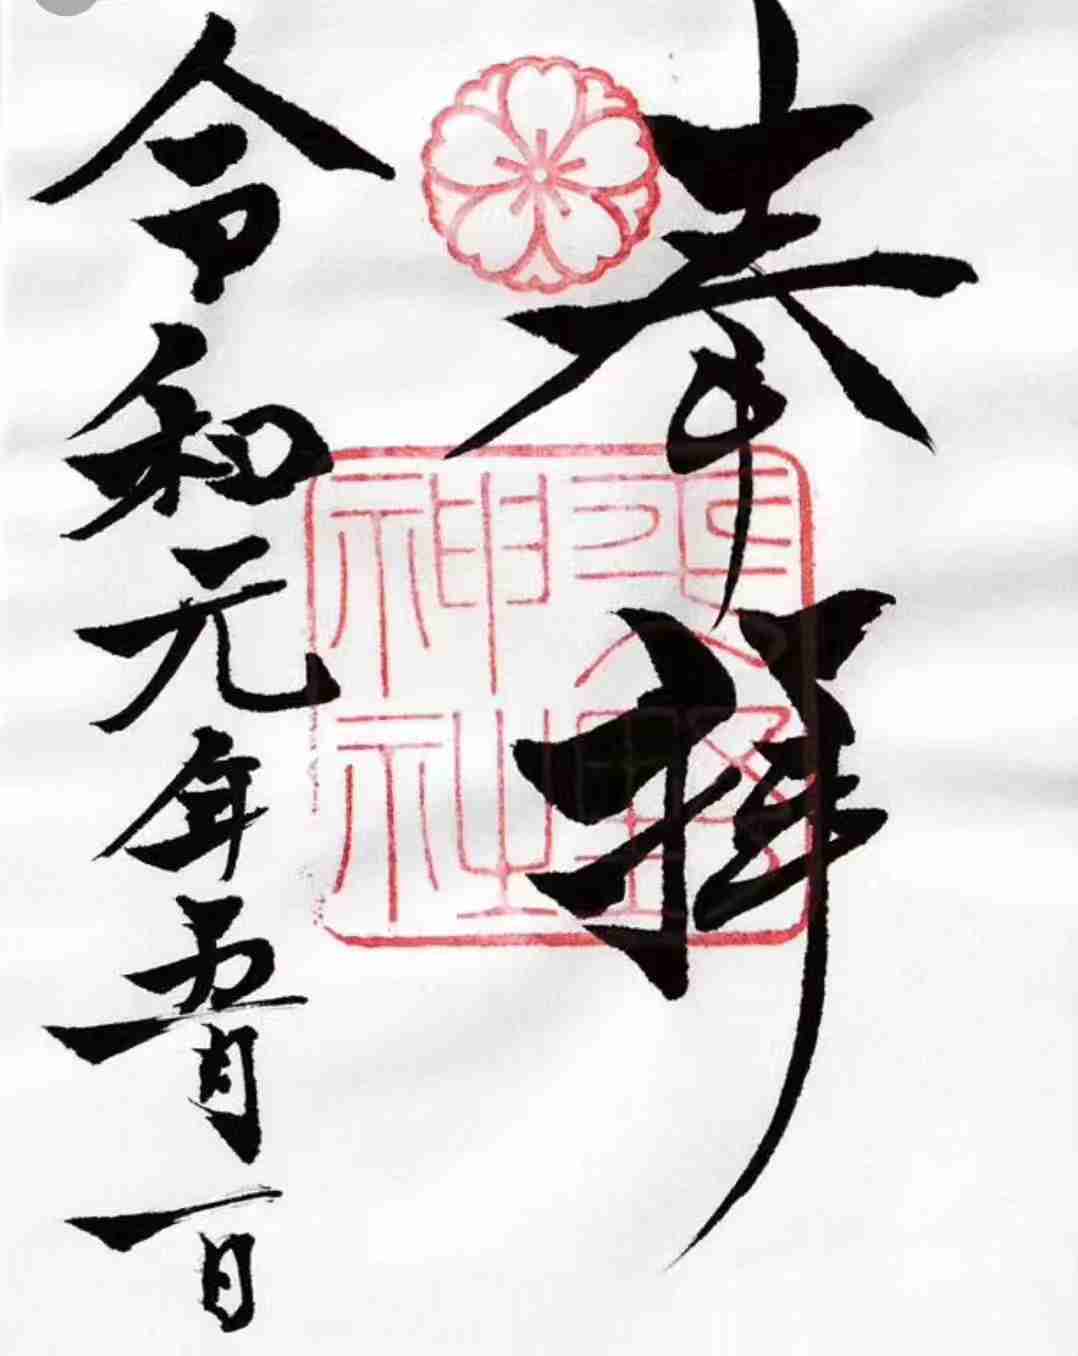 奉拝
平野
神社
令和元年五月一日